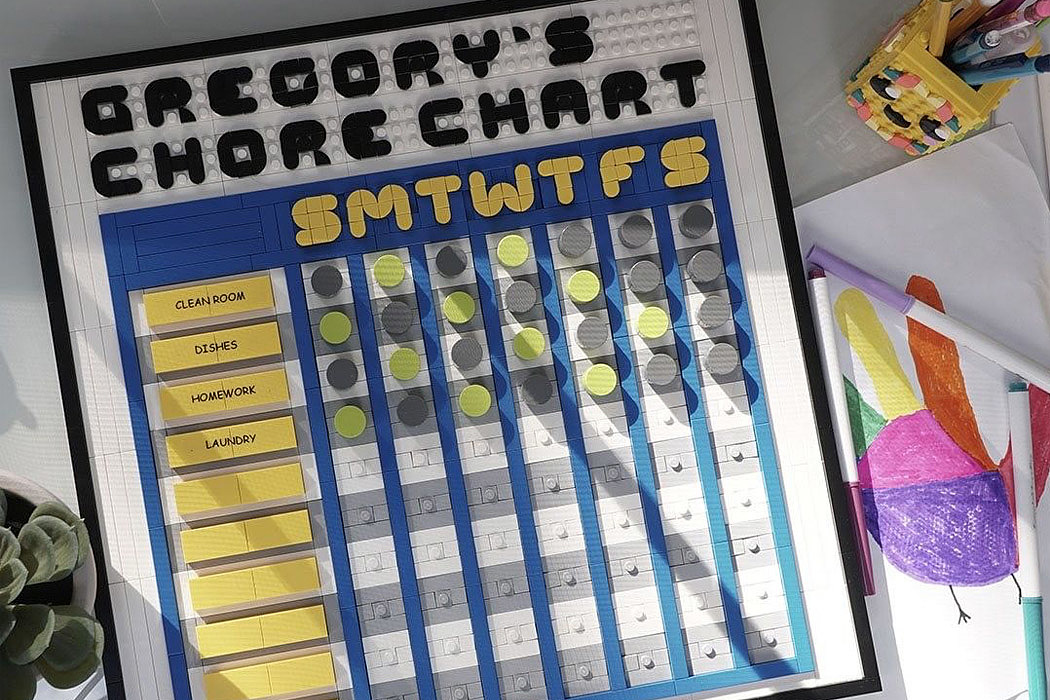 GREGORY'S
CHORE CHART
SMTWTFS
CLEAN ROOM
DISHES
HOMEWORK
LAUNDRY